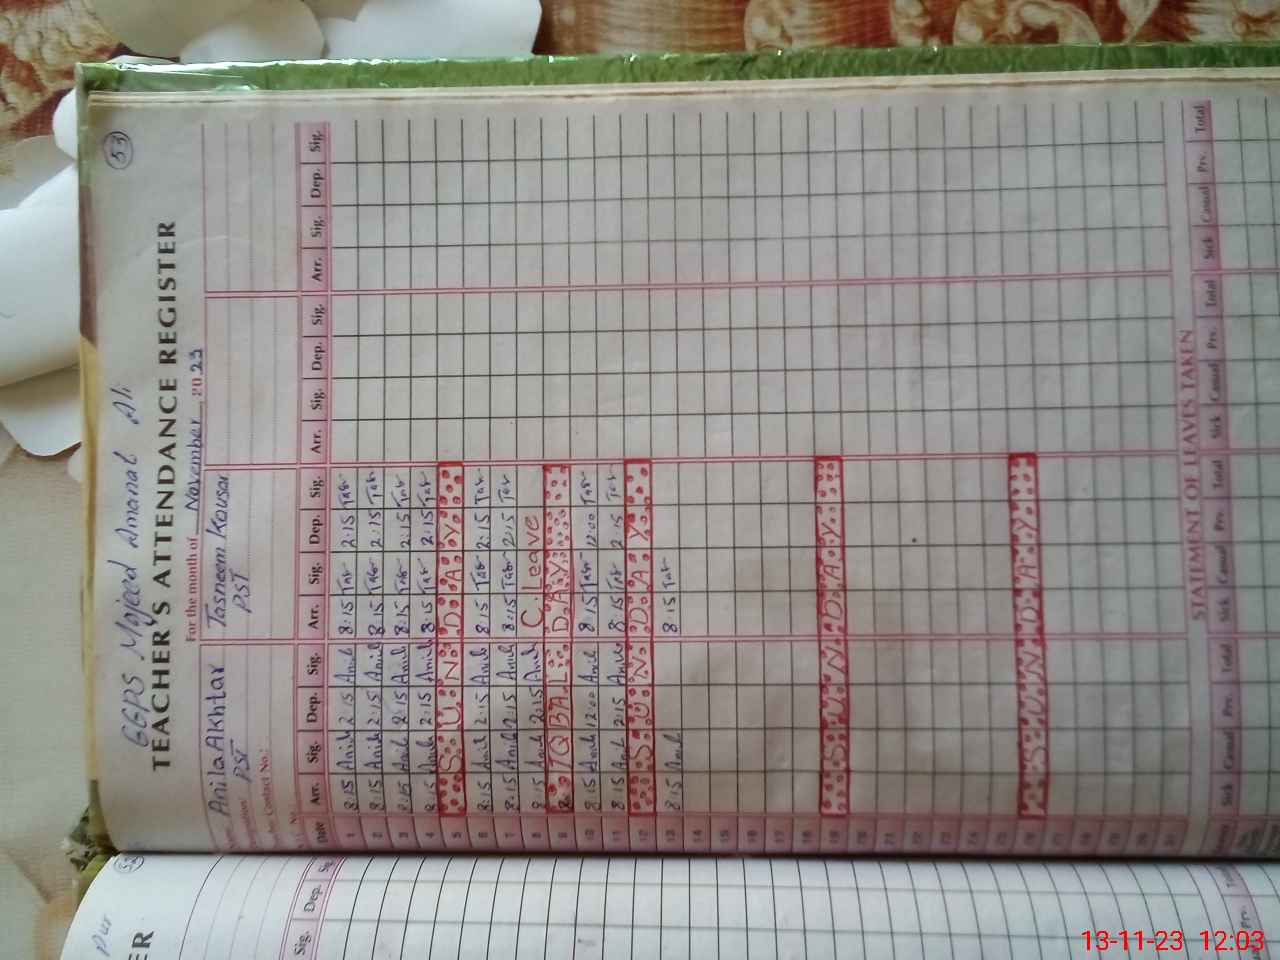 53
GGPS Majeed Amanat Ali
TEACHER'S ATTENDANCE REGISTER
For the month of November 2023
Anila Akhtar Tasneem Kousar
PST PST
Contact No.:
Date Arr. Sig. Dep. Sig. Arr. Sig. Dep. Sig. Arr. Sig. Dep. Sig. Arr. Sig. Dep. Sig.
1 8:15 Anila 2:15 Anila 8:15 Tas 2:15 Tas
2 8:15 Anila 2:15 Anila 8:15 Tas 2:15 Tas
3 8:15 Anila 2:15 Anila 8:15 Tas 2:15 Tas
4 8:15 Anila 2:15 Anila 8:15 Tas 2:15 Tas
5 SUNDAY
6 8:15 Anila 2:15 Anila 8:15 Tas 2:15 Tas
7 8:15 Anila 2:15 Anila 8:15 Tas 2:15 Tas
8 8:15 Anila 2:15 Anila C. Leave
9 IQBAL DAY
10 8:15 Anila 12:00 Anila 8:15 Tas 12:00 Tas
11 8:15 Anila 2:15 Anila 8:15 Tas 2:15 Tas
12 SUNDAY
13 8:15 Anila 8:15 Tas
14
15
16
17
18
19 SUNDAY
20
21
22
23
24
25
26 SUNDAY
27
28
29
30
31
STATEMENT OF LEAVES TAKEN
Sick Casual Prv. Total Sick Casual Prv. Total Sick Casual Prv. Total Sick Casual Prv. Total
Pur
ER
Sig. Dep. Sig.
Prv.
13-11-23 12:03